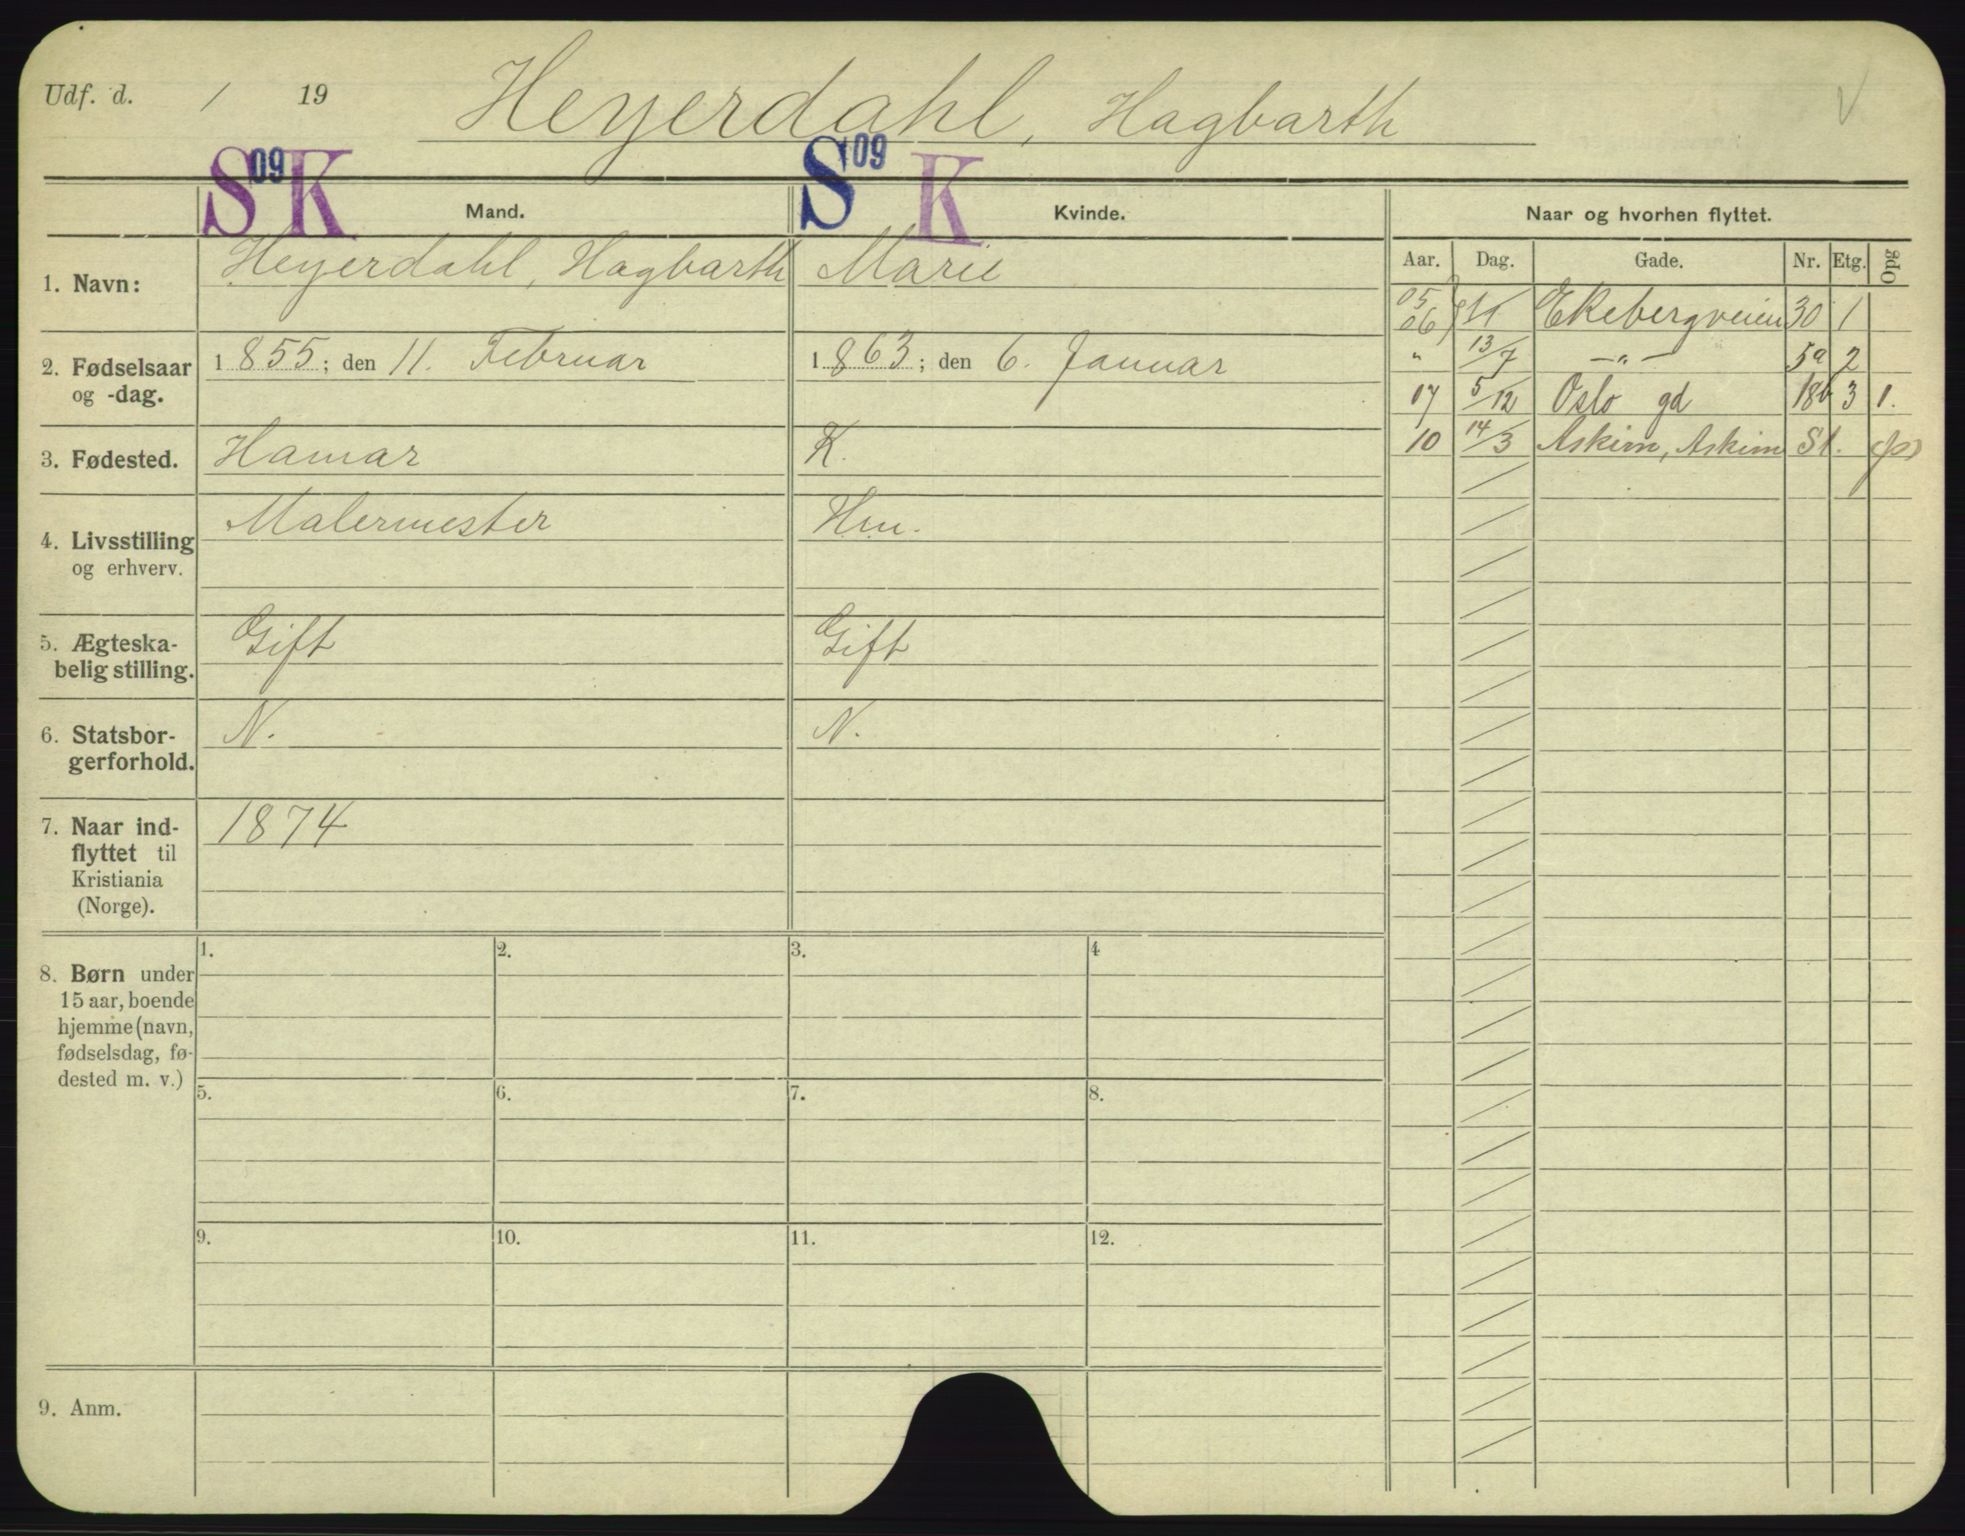 Udf. d. / 19 Heyerdahl, Hagbarth
S 09 K S 09 K
Mand. Kvinde. Naar og hvorhen flyttet.
Aar. Dag. Gade. Nr. Etg. Opg
1. Navn: Heyerdahl, Hagbarth Marie
05
06 Ekebergveien 30 1
" 13/7 —"— 5a 2
07 5/12 Oslo gd 18b 3 1.
10 14/3 Askim, Askim St.
2. Fødselsaar 1855; den 11. Februar 1863; den 6. Januar
og -dag.
3. Fødested. Hamar K.
4. Livsstilling Malermester Hru.
og erhverv.
5. Ægteska- Gift Gift
belig stilling.
6. Statsbor- N. N.
gerforhold.
7. Naar ind- 1874
flyttet til
Kristiania
(Norge).
8. Børn under
15 aar, boende
hjemme (navn,
fødselsdag, fø-
dested m. v.)
1. 2. 3. 4
5. 6. 7. 8.
9. 10. 11. 12.
9. Anm.